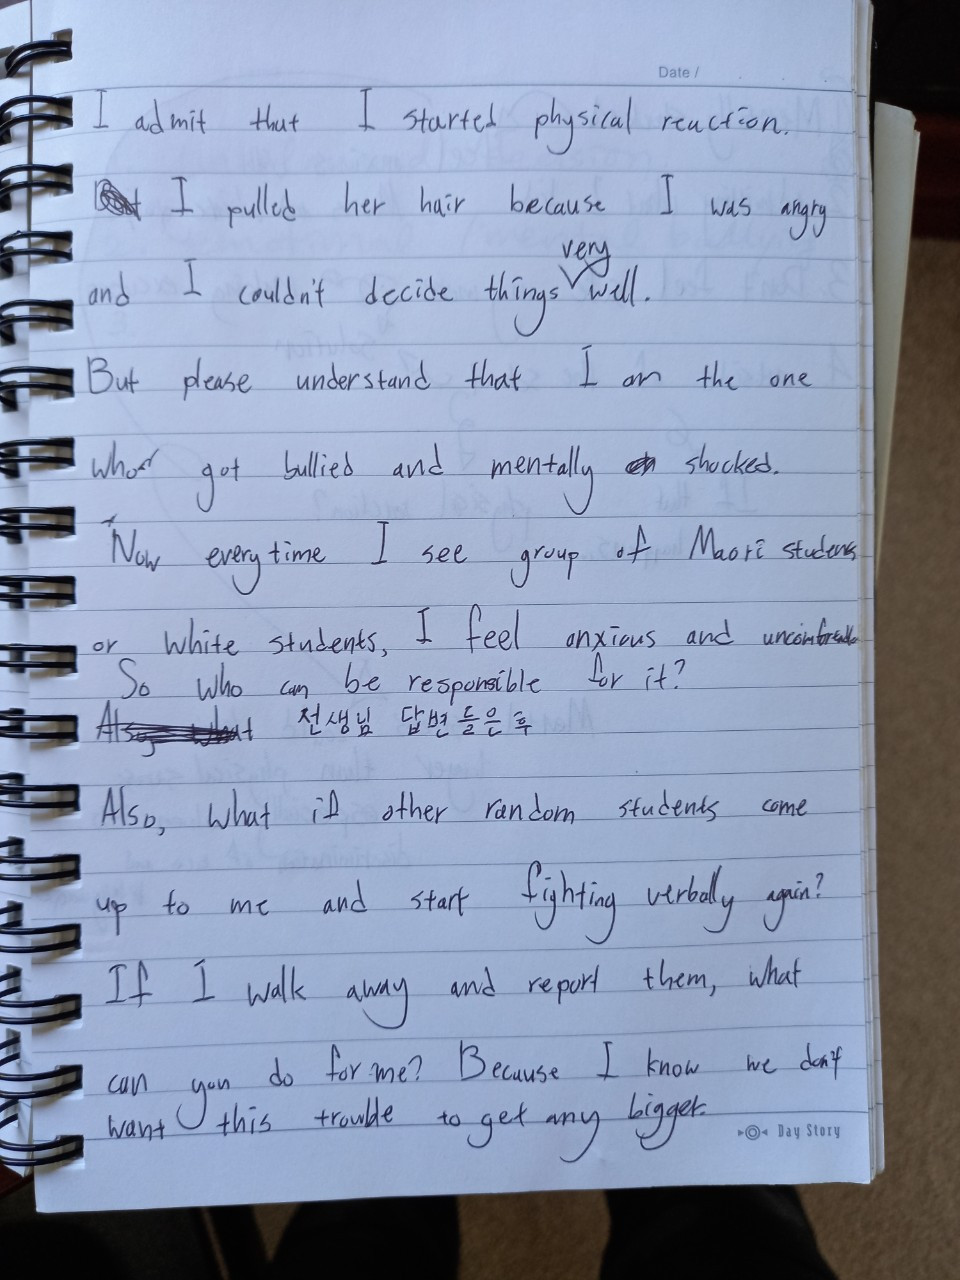 Date /
I admit that I started physical reaction.
I pulled her hair because I was angry
very
and I couldn't decide things well.
But please understand that I am the one
who got bullied and mentally shocked.
Now everytime I see group of Maori students
or white students, I feel anxious and
So who can be responsible for it?
전생님 답변 들은 후
Also, what if other random students come
up to me and start fighting verbally again?
If I walk away and report them, what
can you do for me? Because I know we don't
want this trouble to get any bigger.
Day Story